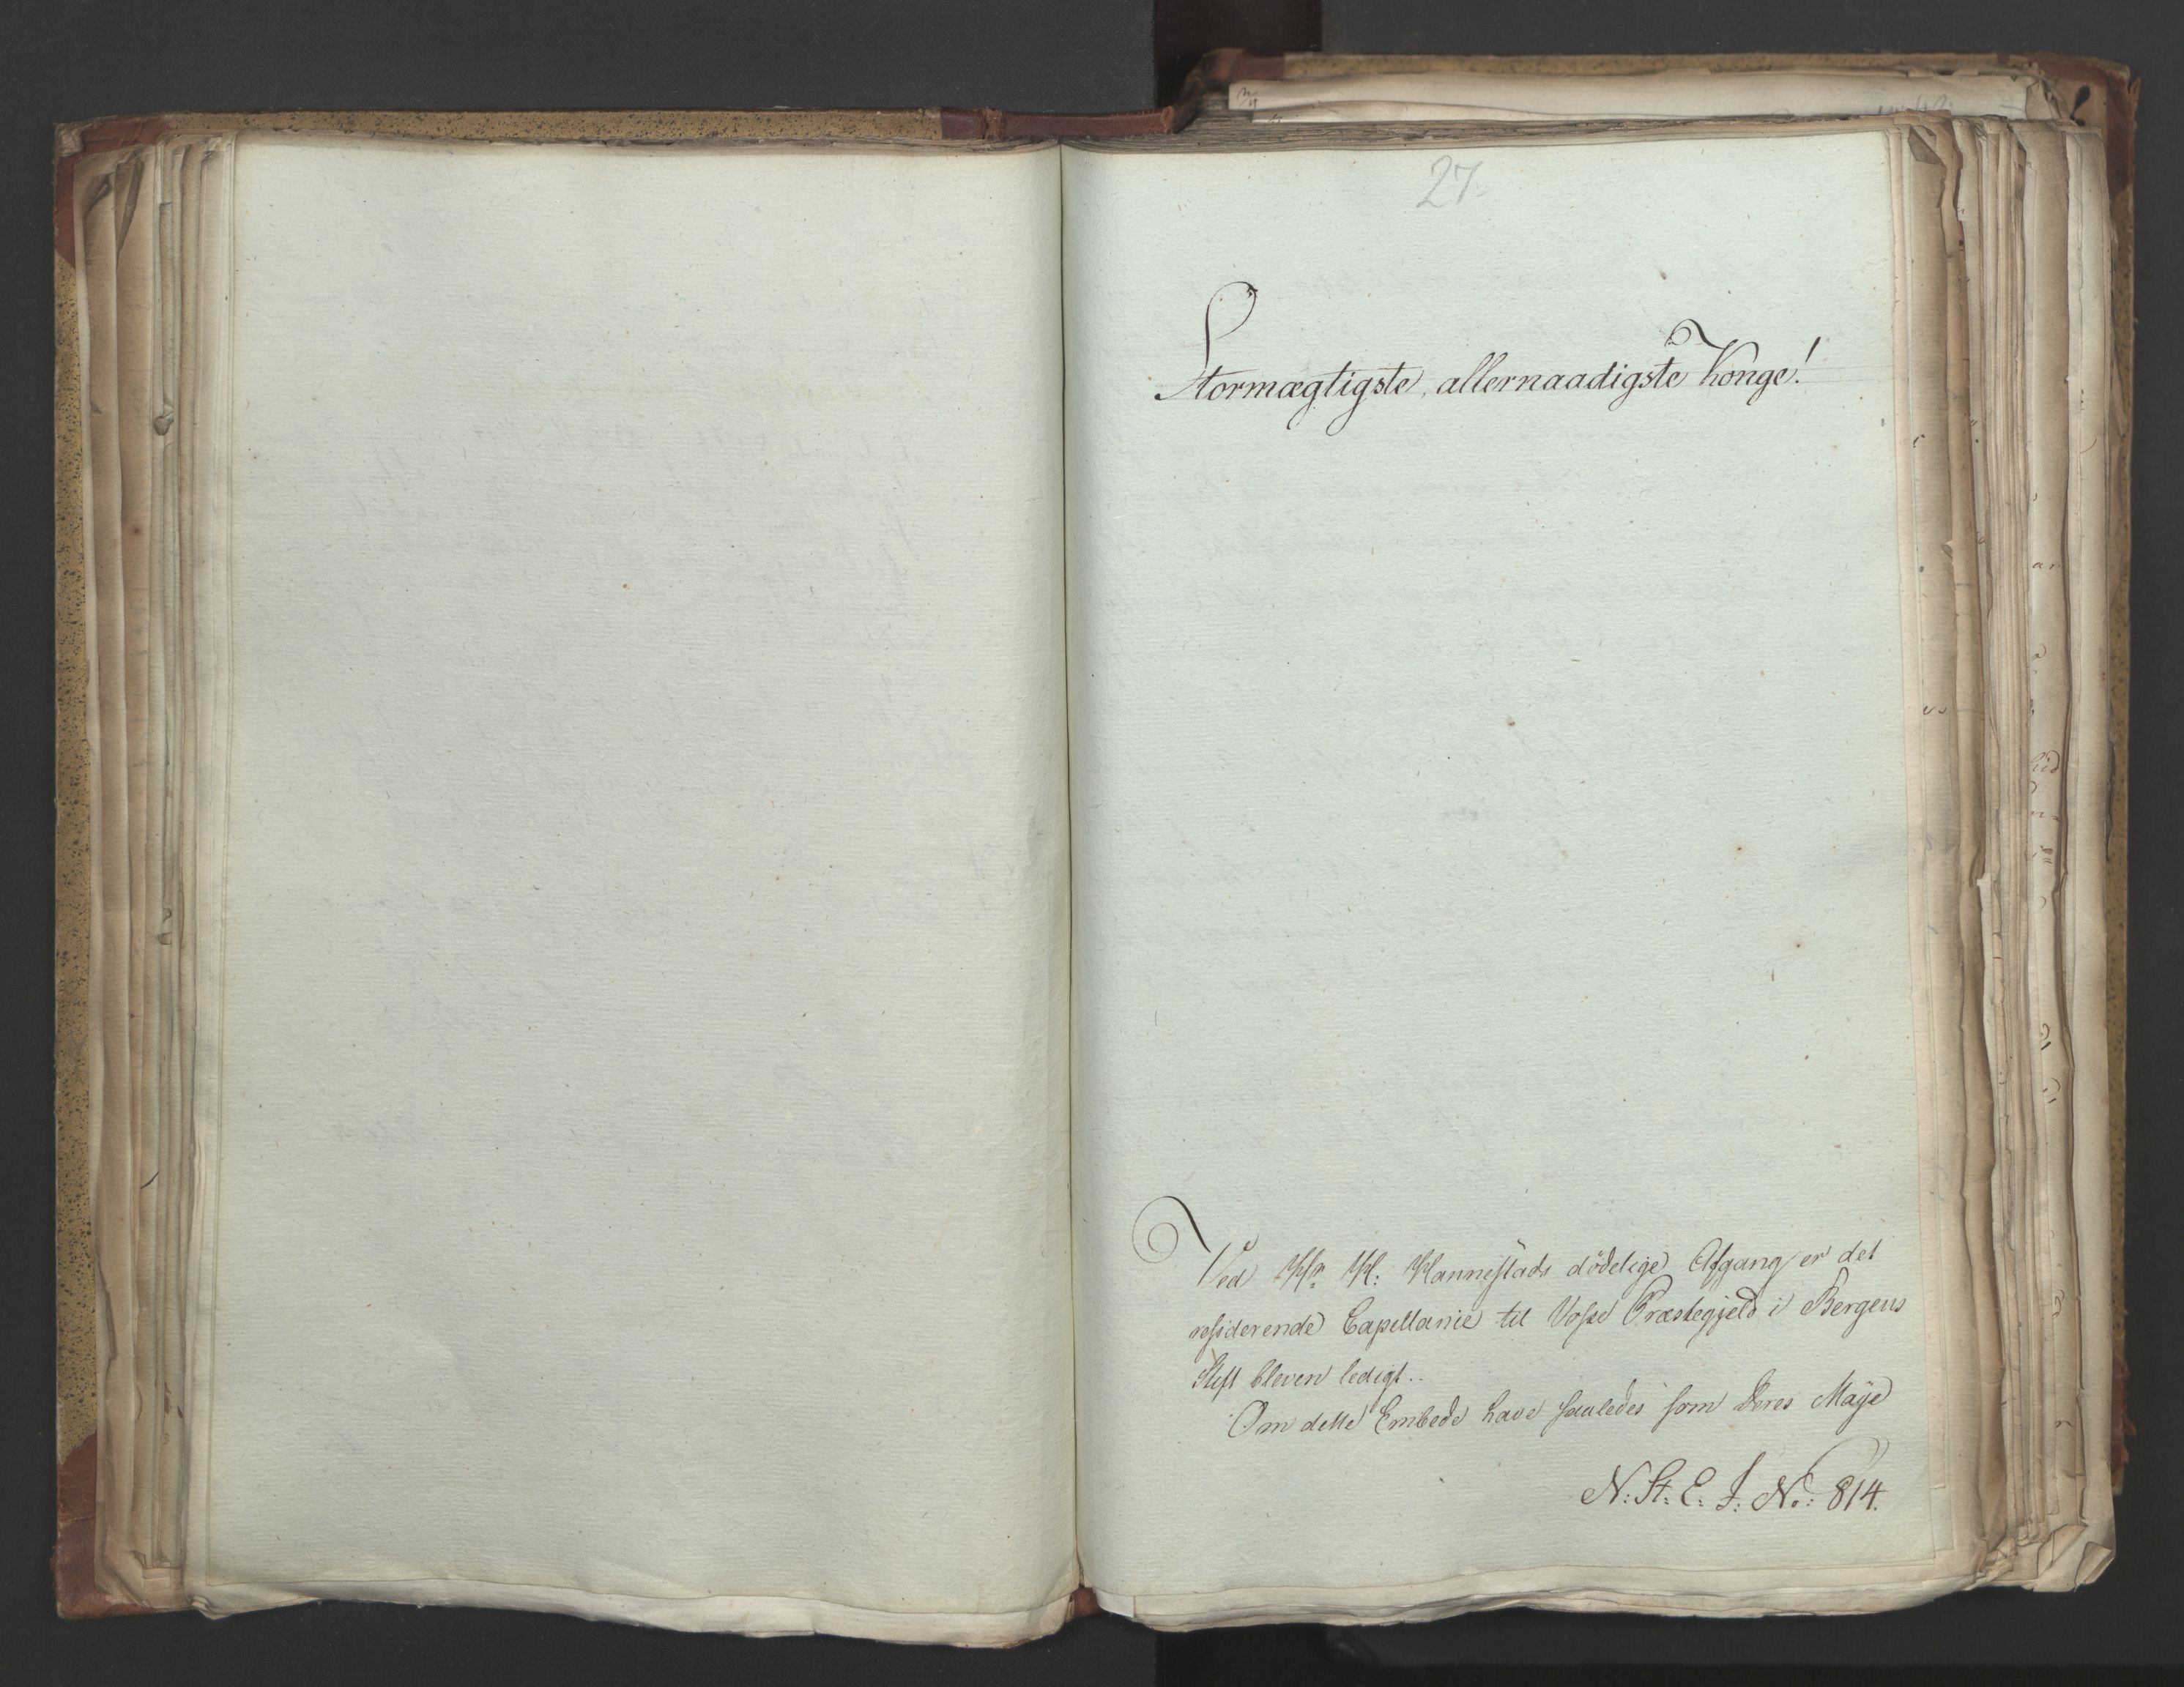 27.
Stormægtigste, allernaadigste Konge!
Ved Hr. H: Hannestads dödelige Afgang er det
residerende Capellanie til Vosse Præstegjeld i Bergens
Stift bleven ledigt..
Om dette Embede have saaledes som Deres Maje
N: St: E: J: No: 814.